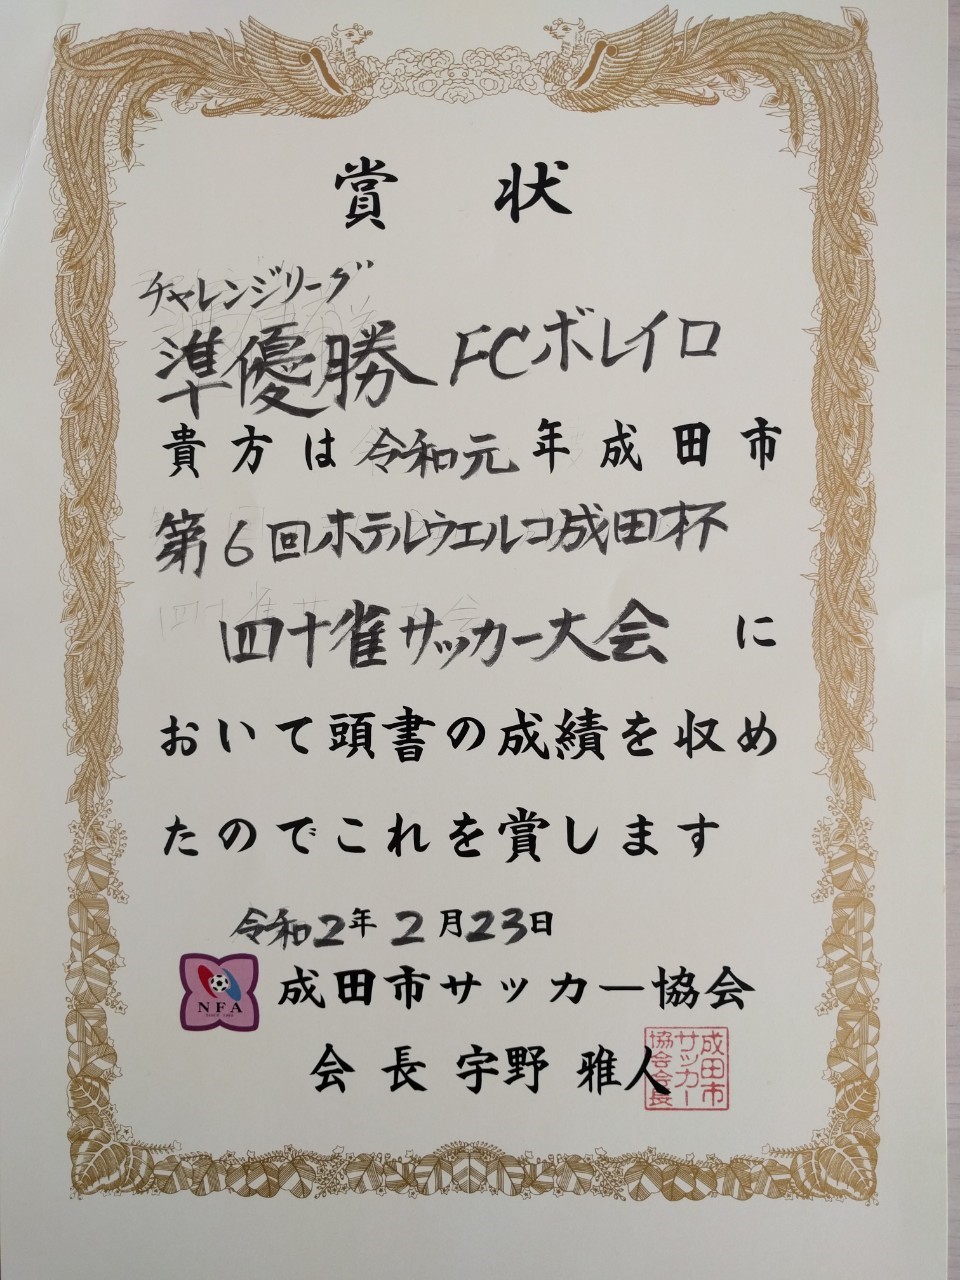 賞状
チャレンジリーグ
準優勝 FCボレイロ
貴方は令和元年成田市
第6回ホテルウエルコ成田杯
四十雀サッカー大会 に
おいて頭書の成績を収め
たのでこれを賞します
令和2年2月23日
NFA
成田市サッカー協会
会長 宇野 雅人
成田市
サッカー
協会会長